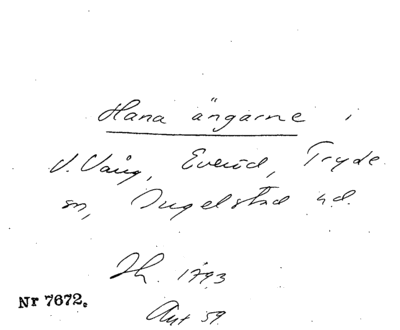 Hana ängarne i
V. Vång, Everöd, Tryde
sn, Ingelstad hd.
Th. 1793
Nr 7672.
Aut 59